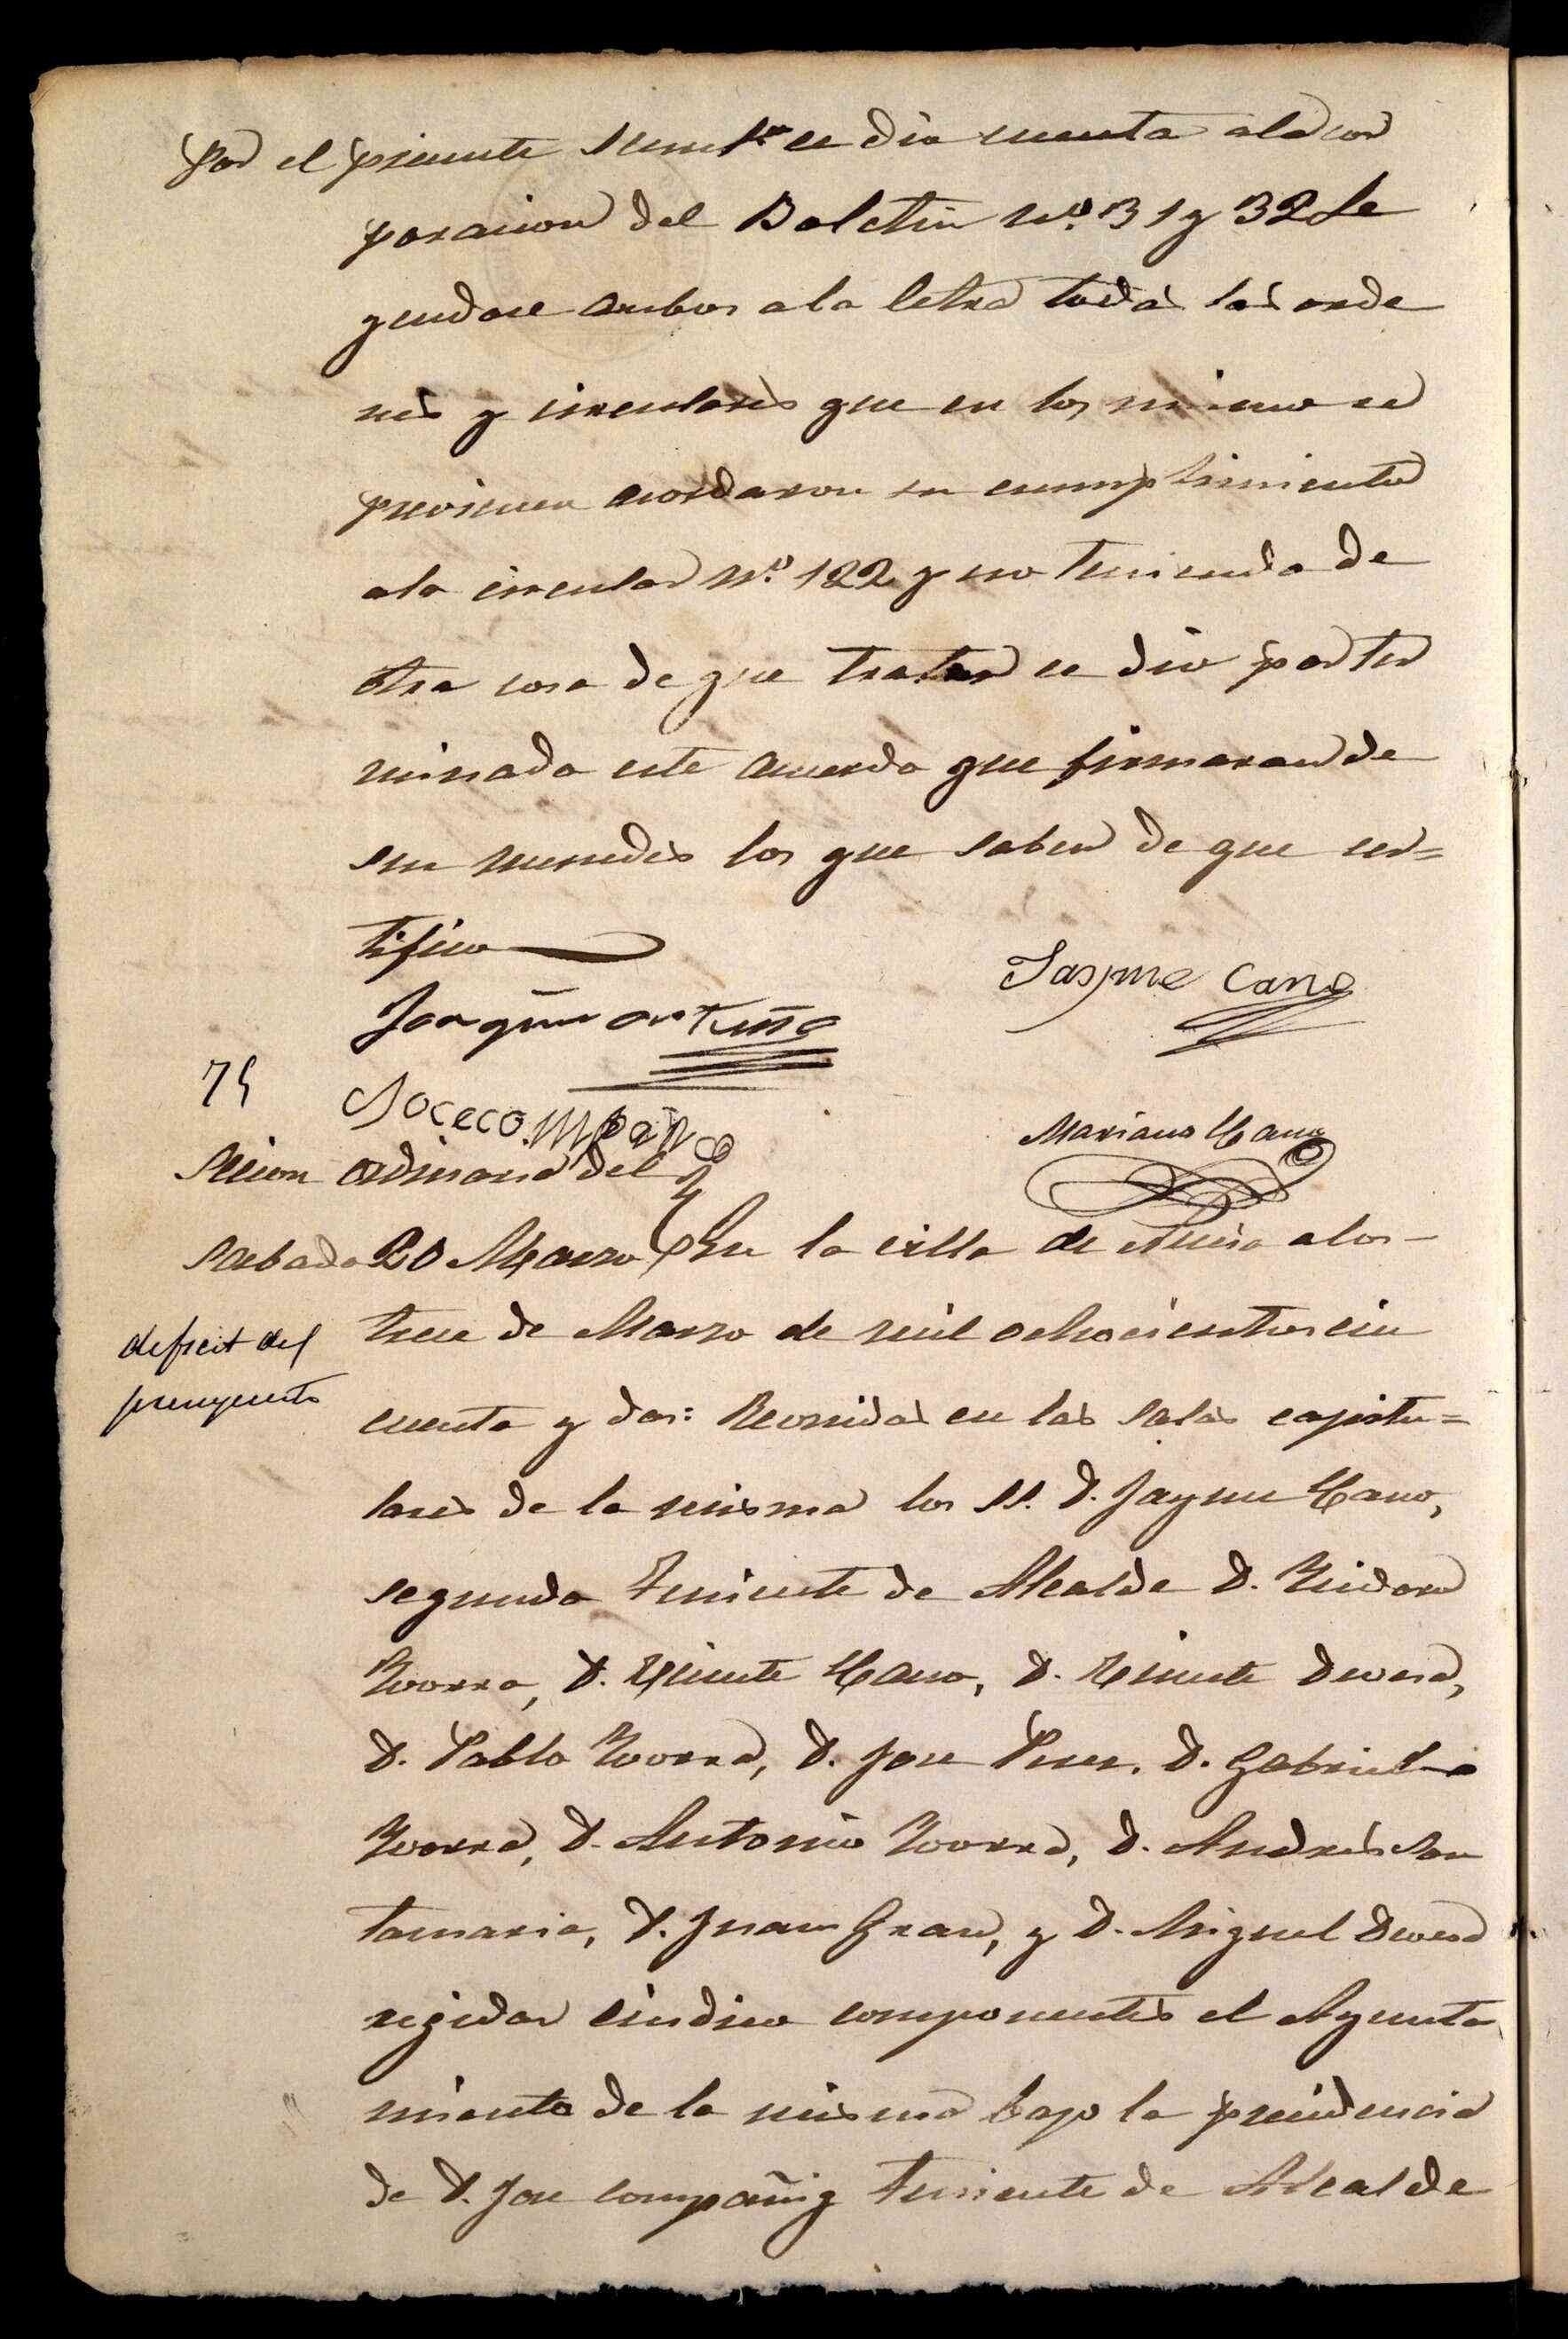 Por el presente Secret.º se dio cuenta ala cor
poracion del Boletin N.º 31 y 32 Le
yendose ambos ala letra todas las orde
nes y circulares que en los mismo se
previenen acordaron su cumplimiento
ala circular N.º 122 y no teniendo de
otra cosa de que tratar se dio por ter
minado este acuerdo que firmaran de
sus mercedes los que saben de que cer=
tifico
Jayme Cano
Joaquin ortuño
75
Jocecompañ
Mariano Cano
Secion ordinaria del
Sabado 20 Marzo
En la villa de a los
deficit del
presupuesto
trece de Marzo de mil ochocientos cin
cuenta y dos: Reonidos en las salas capitu=
lares de la misma los SS. D. Jayme Cano,
segundo Teniente de Alcalde D. Ysidoro
Yvorra, D. Vicente Cano, D. Vicente Devesa,
D. Pablo Yvorra, D. Jose Peres, D. Gabriel
Yvorra, D. Antonio Yvorra, D. Andres San
tamaria, D. Juan Grau, y D. Miguel Devesa
regidor sindico componentes el Ayunta
miento de la misma bajo la presidencia
de D. Jose compañ y Teniente de Alcalde